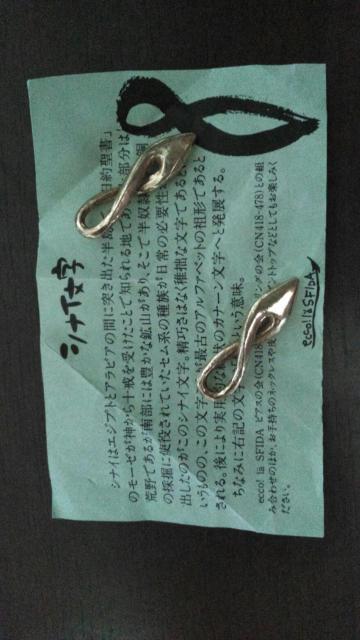 シナイ文字
シナイはエジプトとアラビアの間に突き出た半島 旧約聖書」
のモーゼが神から十戒を受けたことで知られる地であ 部分は
荒野であるが南部には豊かな鉱山があり、そこで半奴隷 銅
の採掘に使役されていたセム系の種族が日常の必要性
出したのがこのシナイ文字。精巧さはなく稚拙な文字である
いうものの、この文字 が最古のアルファベットの祖形であると
される。後により実用的な のカナーン文字へと発展する。
ちなみに右記の文字 という意味。
ecco! la SFIDA ピアスの会(CN418 ングの会(CN418-478)との組
み合わせのほか、お手持ちのネックレスや皮 ントトップなどとしてもお楽しみく
ださい。
ecco! la SFIDA